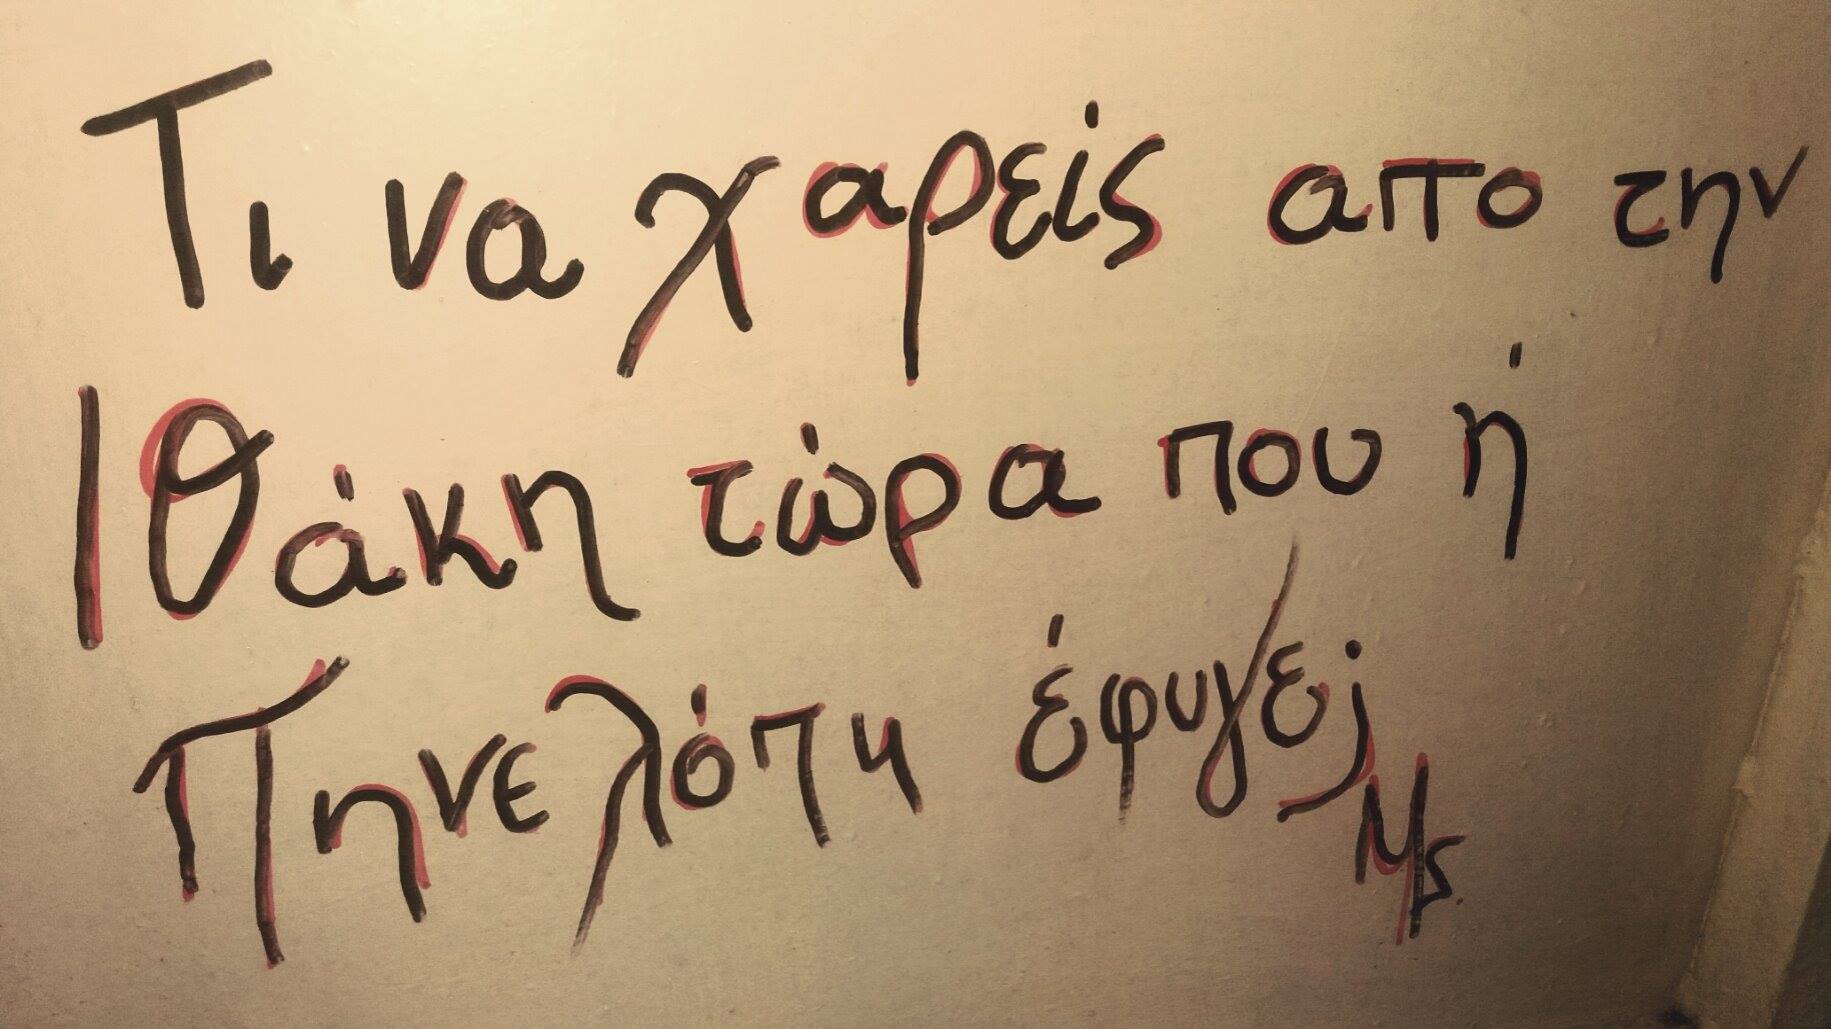 Τι να χαρείς απο την
Ιθάκη τώρα που ή
Πηνελόπη έφυγε;